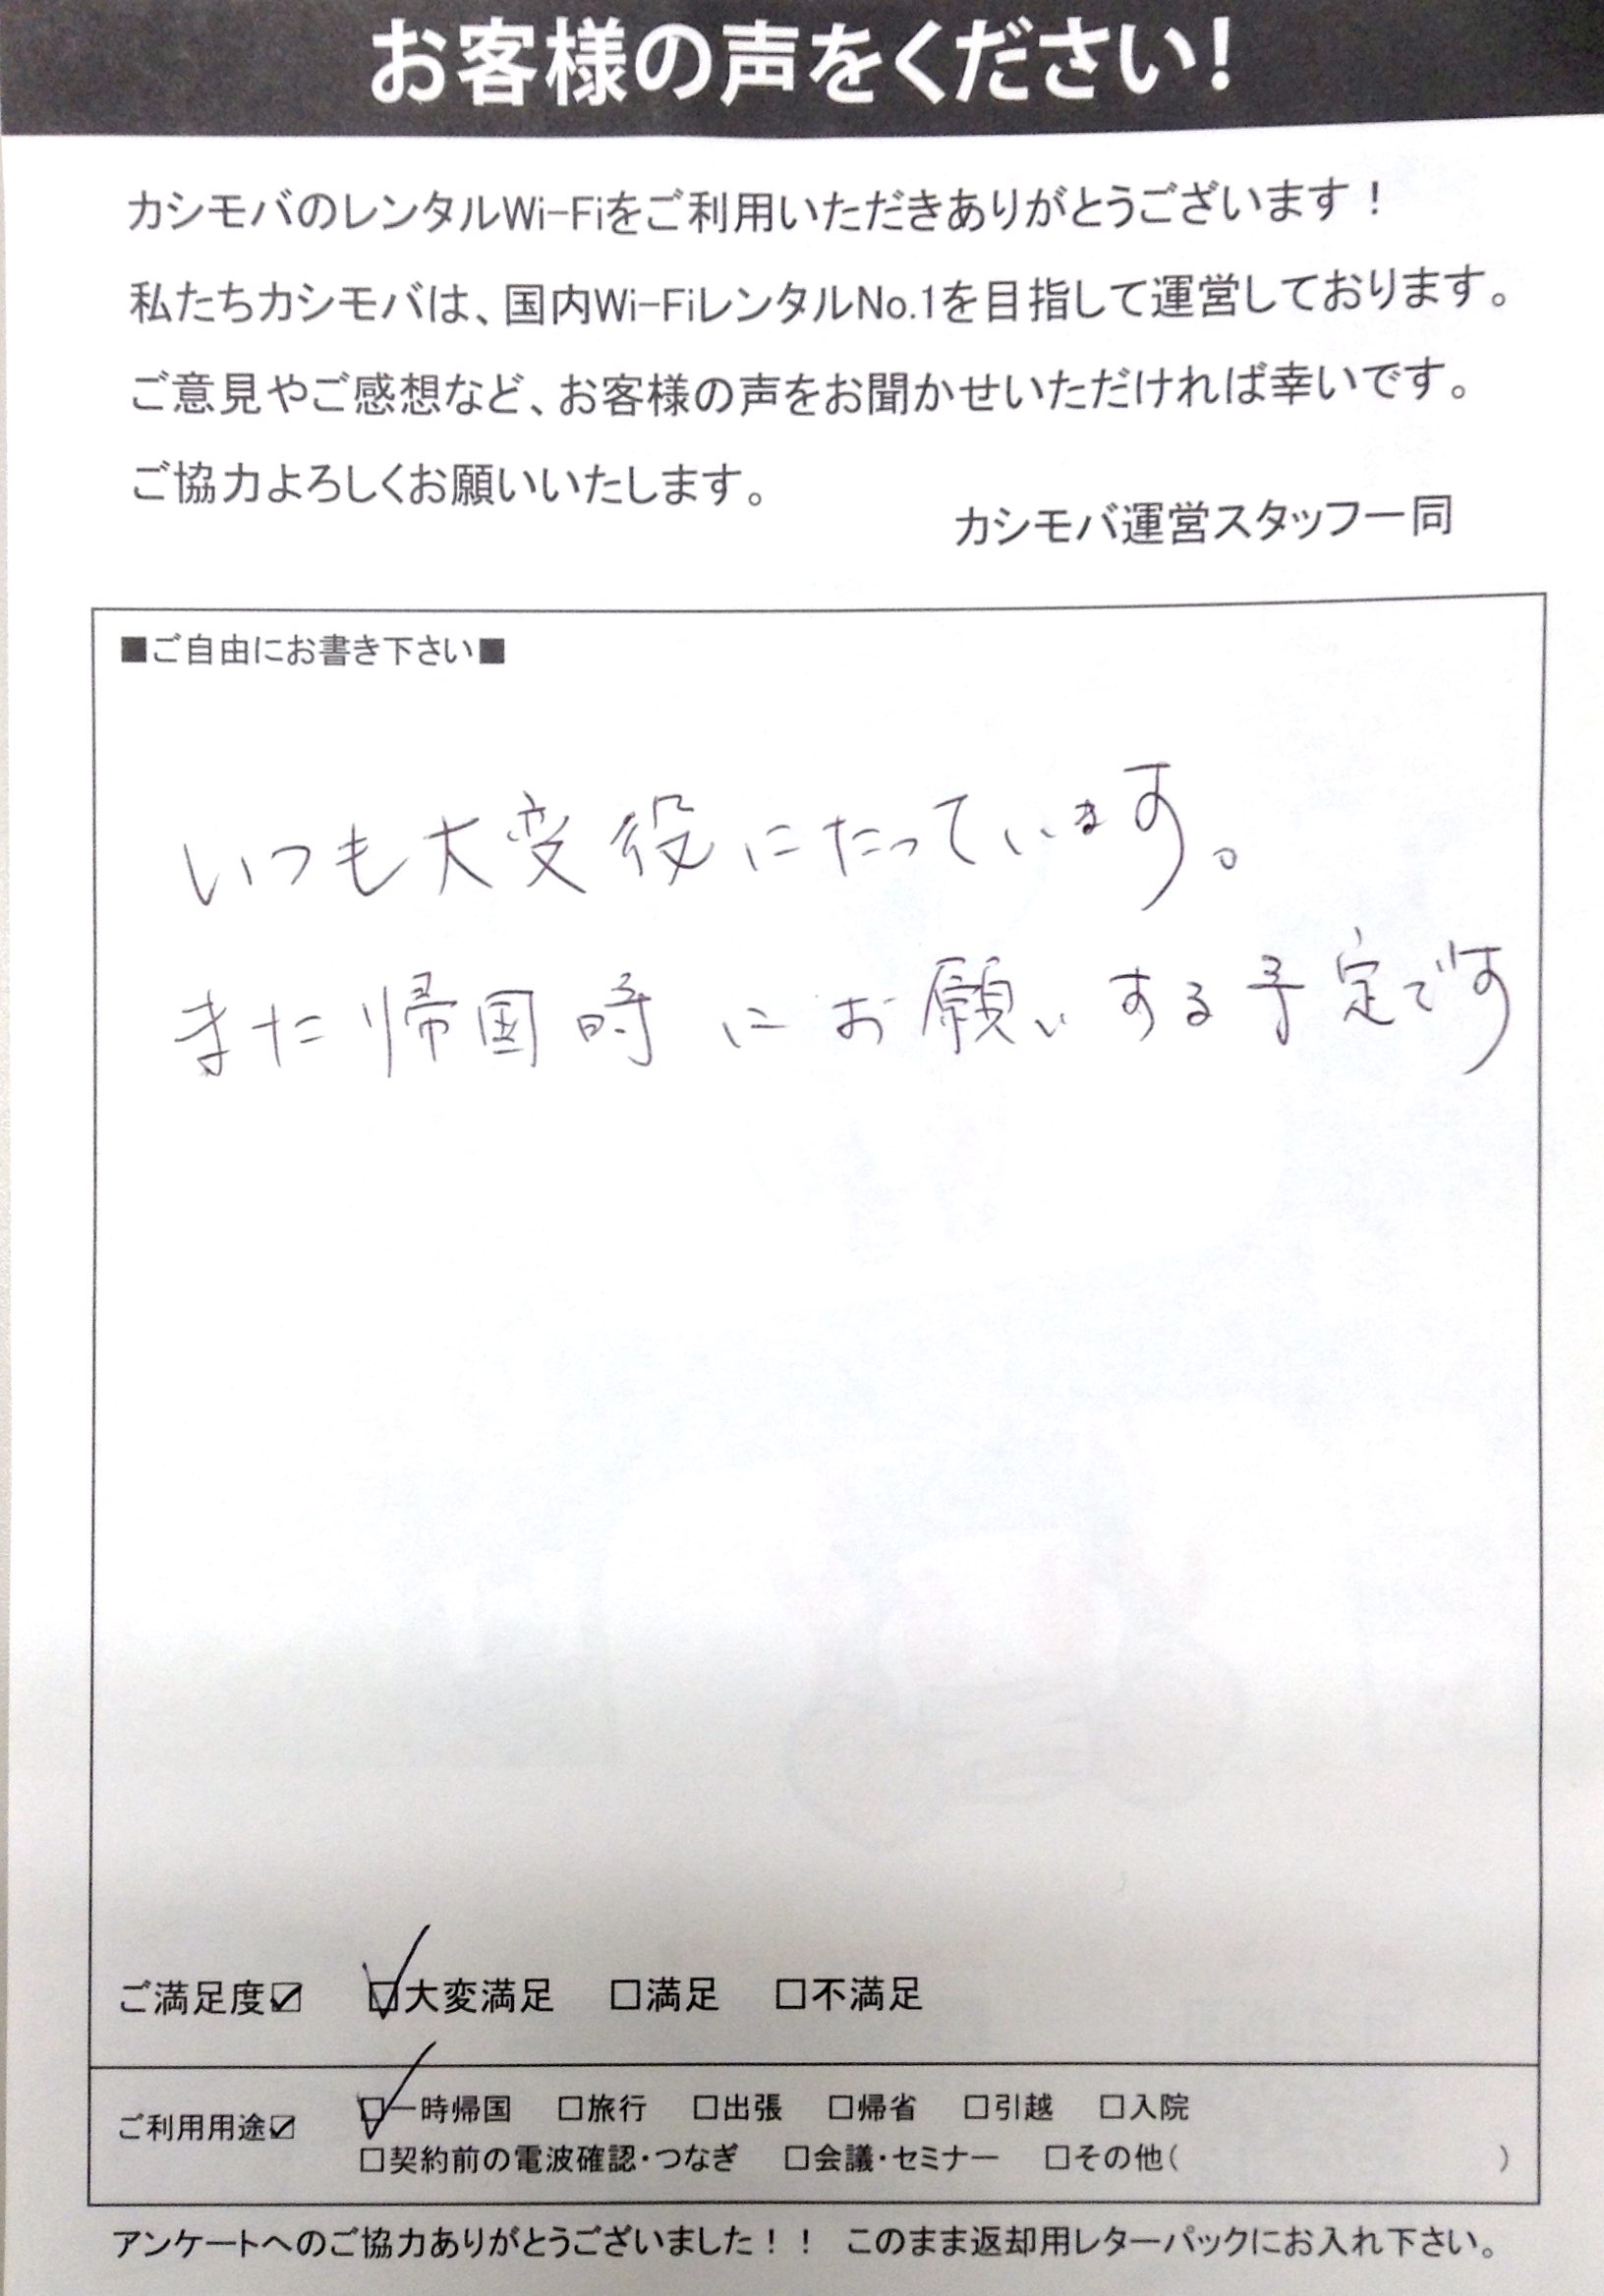 お客様の声をください!
カシモバのレンタルWi-Fiをご利用いただきありがとうございます!
私たちカシモバは、国内Wi-FiレンタルNo.1を目指して運営しております。
ご意見やご感想など、お客様の声をお聞かせいただければ幸いです。
ご協力よろしくお願いいたします。
カシモバ運営スタッフ一同
■ご自由にお書き下さい■
いつも大変役にたっています。
また帰国時にお願いする予定です
ご満足度☑ ☑大変満足 □満足 □不満足
ご利用用途☑ ☑一時帰国 □旅行 □出張 □帰省 □引越 □入院
□契約前の電波確認・つなぎ □会議・セミナー □その他( )
アンケートへのご協力ありがとうございました!! このまま返却用レターパックにお入れ下さい。